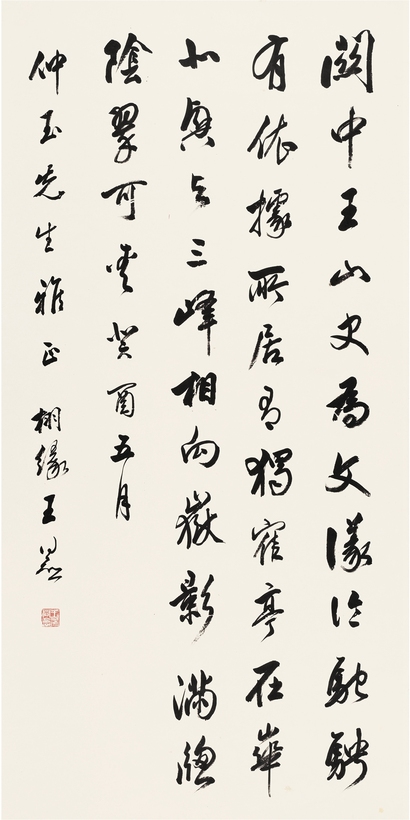 關中王山史為文濛泠馳騁
有依據所居有獨寉亭在華
山真與三峰相向嶽影滿窗
陰翠可愛癸酉五月
仲玉先生雅正 栩緣王